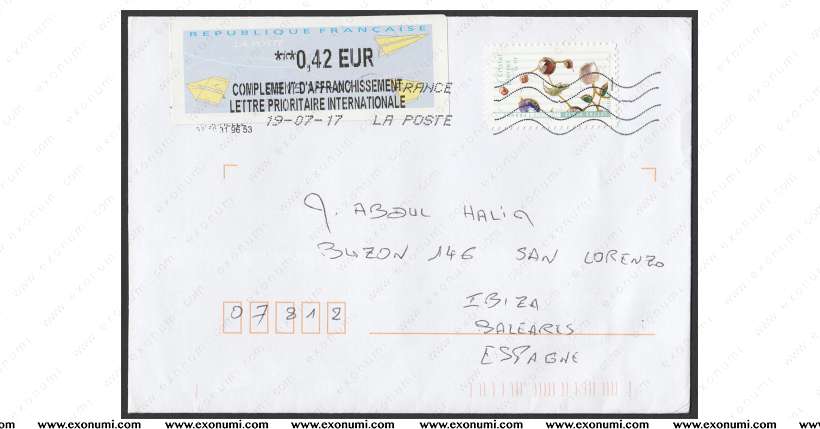 REPUBLIQUE FRANÇAISE
**0,42 EUR
COMPLEMENT D'AFFRANCHISSEMENT
LETTRE PRIORITAIRE INTERNATIONALE
FRANCE
19-07-17 LA POSTE
11 96 53
J. ABDUL HALIM
BUZON 146 SAN LORENZO
IBIZA
07812
BALEARES
ESPAGNE
www.exonumi.com www.exonumi.com www.exonumi.com www.exonumi.com www.exonumi.com www.exonumi.com www.exonumi.com